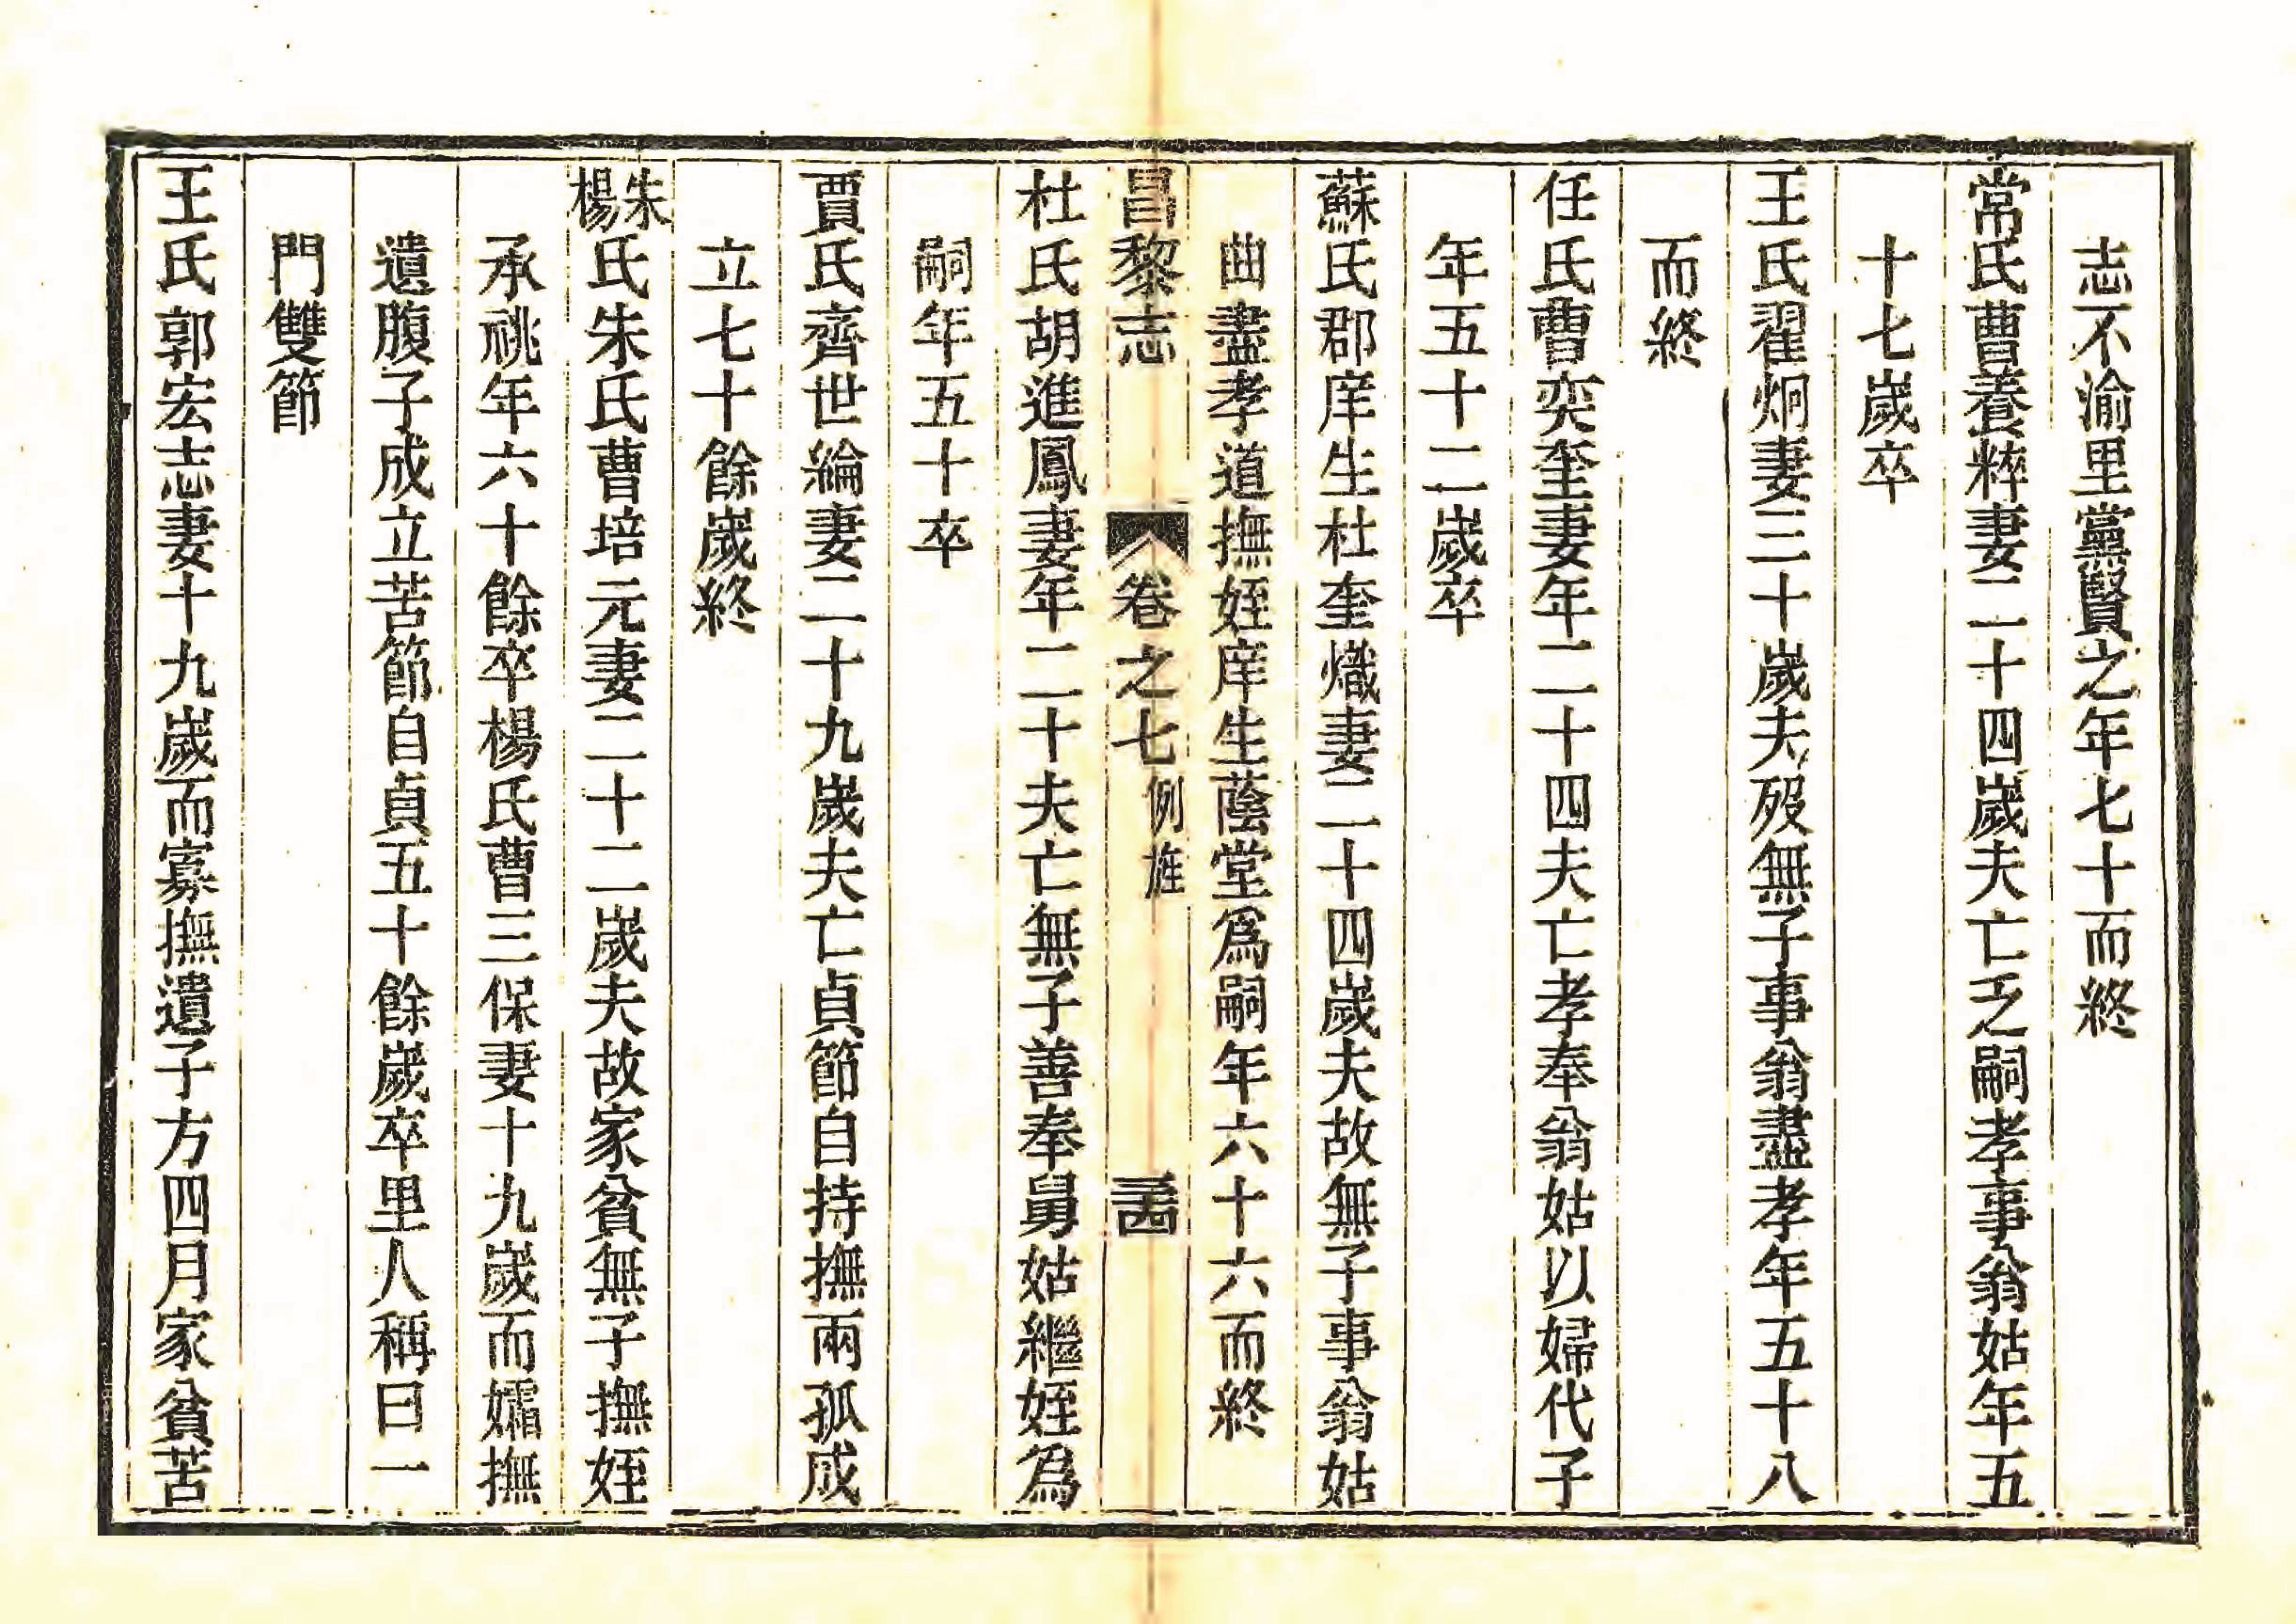 志不渝里黨賢之年七十而終
常氏曹養粹妻二十四歲夫亡乏嗣孝事翁姑年五
十七歲卒
王氏翟炯妻三十歲夫歿無子事翁盡孝年五十八
而終
任氏曹奕奎妻年二十四夫亡孝奉翁姑以婦代子
年五十二歲卒
蘇氏郡庠生杜奎熾妻二十四歲夫故無子事翁姑
曲盡孝道撫姪庠生蔭堂爲嗣年六十六而終
昌黎志 卷之七 例旌 三十四
杜氏胡進鳳妻年二十夫亡無子善奉舅姑繼姪爲
嗣年五十卒
賈氏齊世綸妻二十九歲夫亡貞節自持撫兩孤成
立七十餘歲終
朱楊氏朱氏曹培元妻二十二歲夫故家貧無子撫姪
承祧年六十餘卒楊氏曹三保妻十九歲而孀撫
遺腹子成立苦節自貞五十餘歲卒里人稱曰一
門雙節
王氏郭宏志妻十九歲而寡撫遺子方四月家貧苦